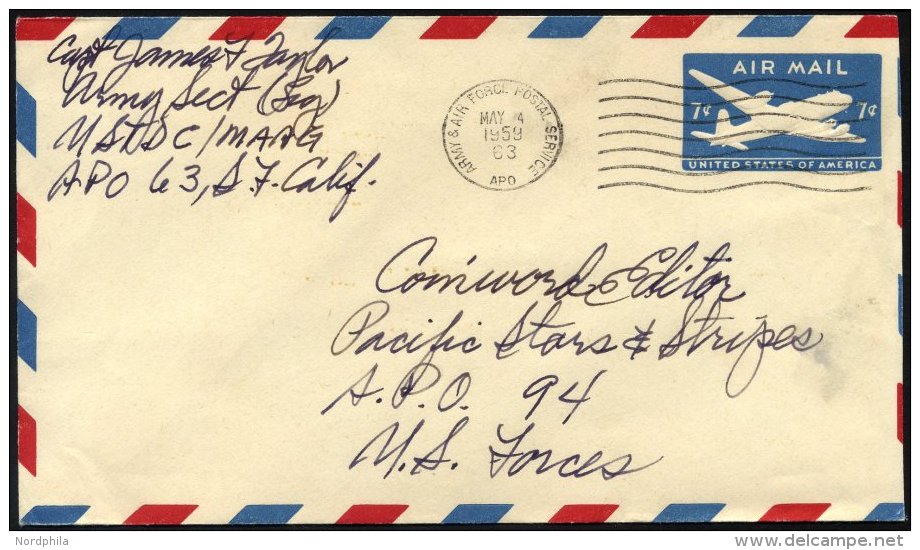 Capt James F Taylor
Army Sect (Sig)
USTDC/MAAG
APO 63, S.F. Calif.
ARMY & AIR FORCE POSTAL SERVICE
MAY 4
1959
63
APO
AIR MAIL
7¢ 7¢
UNITED STATES OF AMERICA
Coinword Editor
Pacific Stars & Stripes
A.P.O. 94
U.S. Forces
Nordphila
delcampe.net